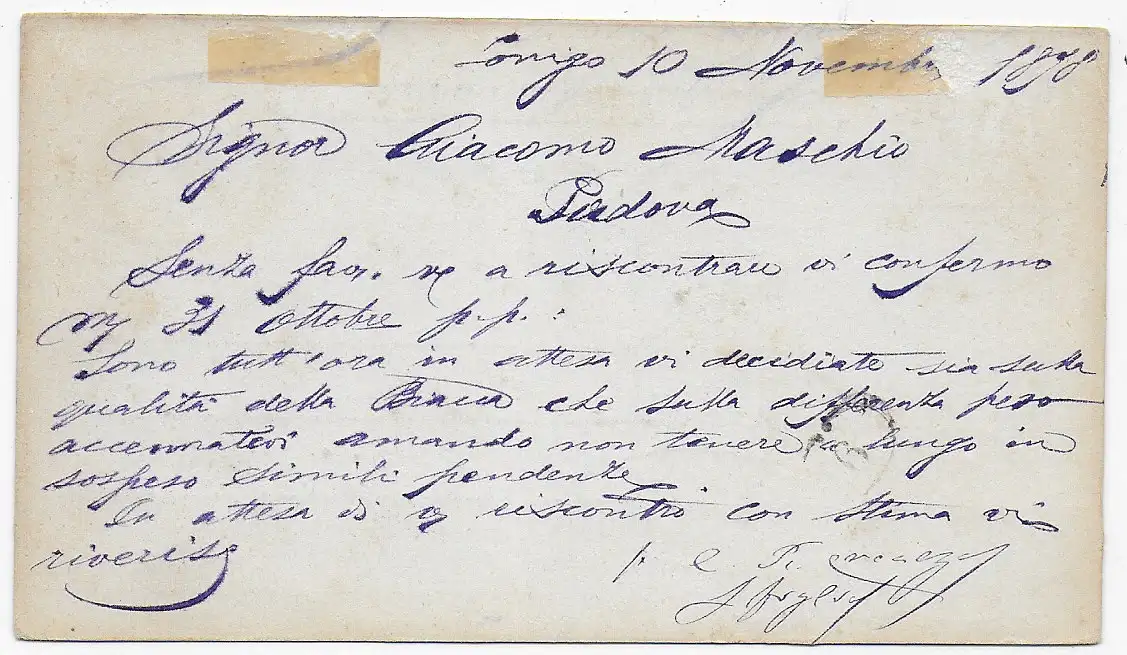 Lonigo 10 Novembre 1878
Signor Giacomo Maschio
Padova
Senza fav. vs a riscontrare vi confermo
my 31 Ottobre p.p. :
Sono tutt'ora in attesa vi decidiate sia sulla
qualità della che sulla differenza peso
accennatevi amando non tenere a lungo in
sospeso simili pendenze
In attesa di vs riscontro con stima vi
riverisco
p. C. F.